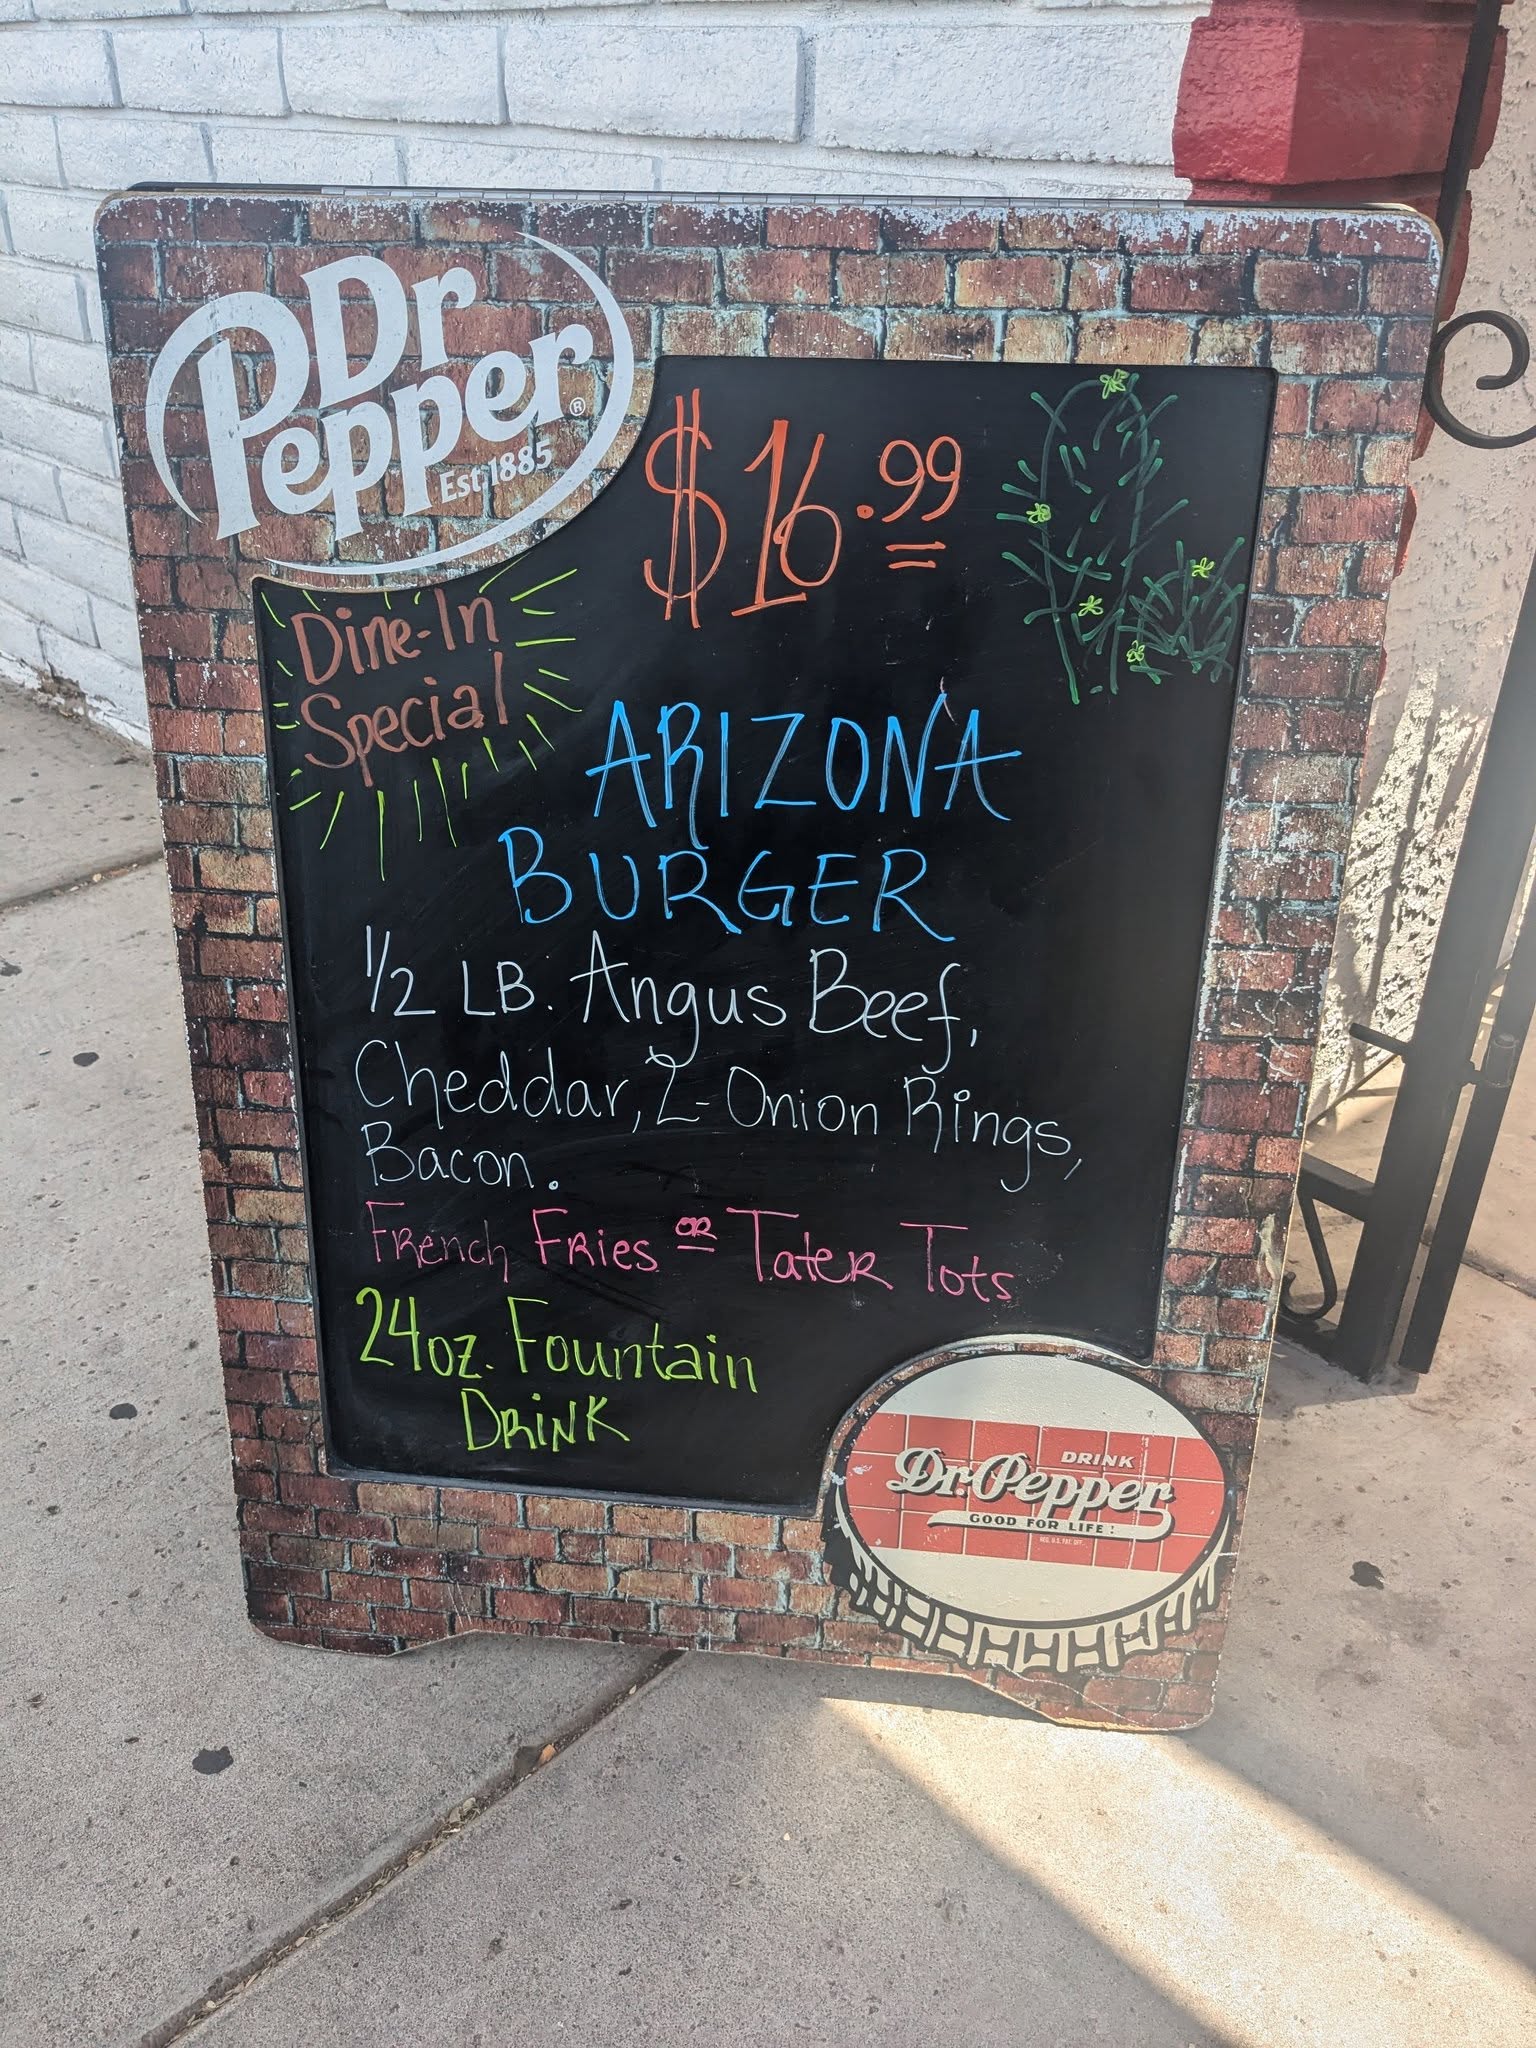 Dr
Pepper®
Est. 1885
$16.99
Dine-In
Special
ARIZONA
BURGER
1/2 LB. Angus Beef,
Cheddar, 2-Onion Rings,
Bacon.
French Fries OR Tater Tots
24oz. Fountain
Drink
DRINK
Dr. Pepper
GOOD FOR LIFE!
REG. U.S. PAT. OFF.